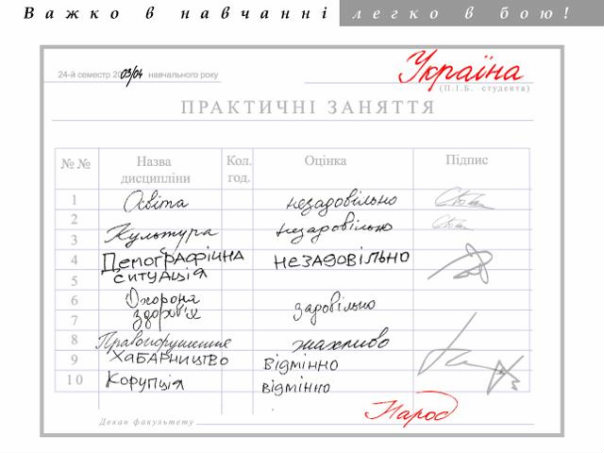 Важко в навчанні легко в бою!
24-й семестр 2003/04 навчального року
Україна
(П.І.Б. студента)
ПРАКТИЧНІ ЗАНЯТТЯ
№ № Назва дисципліни Кол. год. Оцінка Підпис
1 Освіта незадовільно
2
3 Культура незадовільно
4 Демографічна незадовільно
5 ситуація
6 Охорона задовільно
7 здоров'я
8 Правопорушення жахливо
9 Хабарництво відмінно
10 Корупція відмінно
Народ
Декан факультету